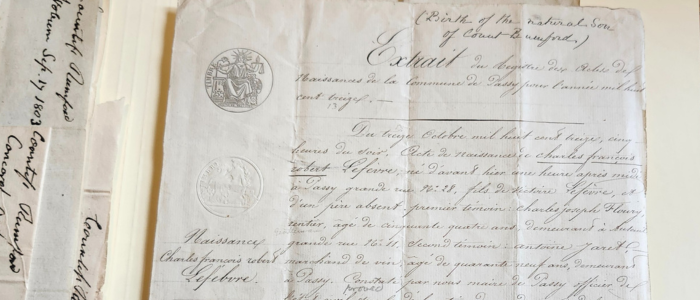 (Birth of the natural Son
of Count Rumford)
Extrait du Registre des Actes de
Naissances de la Commune de Passy pour l'année mil huit
cent treize. —
Du treize Octobre mil huit cent treize, cinq
heures du soir. Acte de Naissance de charles françois
robert Lefèvre, né d'avant hier une heure après midi
à Passy grande rue No. 28, fils de Victoire Lefèvre, et
d'un père absent. premier témoin: charles joseph Fleury
rentier, âgé de cinquante quatre ans, demeurant à Auteuil
grande rue No. 11. Second témoin: antoine Jaret
marchand de vin, âgé de quarante neuf ans, demeurant
à Passy. Constaté par nous maire de Passy officier de
Naissance
Charles françois robert
Lefebvre.
Countess Rumford
Sept. 17 1803
Countess Rumford
Concord
Countess Rumford